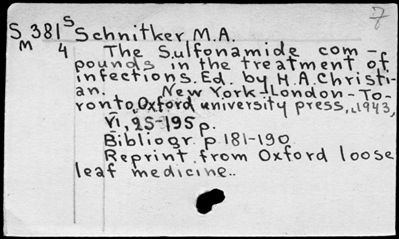 7
S 381 S Schnitker, M.A.
M 4 The Sulfonamide com-
pounds in the treatment of
infections. Ed. by H.A. Christi-
an. New York-London-To-
ronto, Oxford university press, c1943,
VI, 25-195 p.
Bibliogr. p. 181-190
Reprint from Oxford loose
leaf medicine..